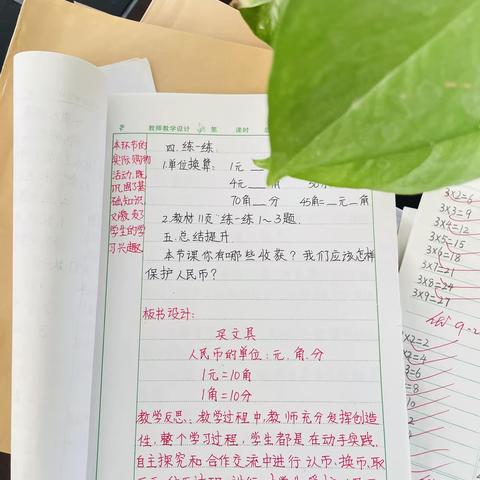 教师教学设计 第 课时
本环节的
实际购物
活动,既
巩固了基
础知识
又激发了
学生的学
习兴趣
四. 练一练:
1.单位换算: 1元
4元 角
70角 分 45角= 元 角
2.教材11页"练一练1~3题.
五.总结提升.
本节课你有哪些收获? 我们应该怎样
保护人民币?
板书设计:
买文具
人民币的单位:元.角.分
1元=10角
1角=10分
教学反思:教学过程中,教师充分发挥创造
性,整个学习过程,学生都是在动手实践.
自主探究和合作交流中进行认币、换币,取
3×2=6
3×3=9
3×4=12
3×5=15
3×6=18
3×7=21
3×8=24
3×9=27